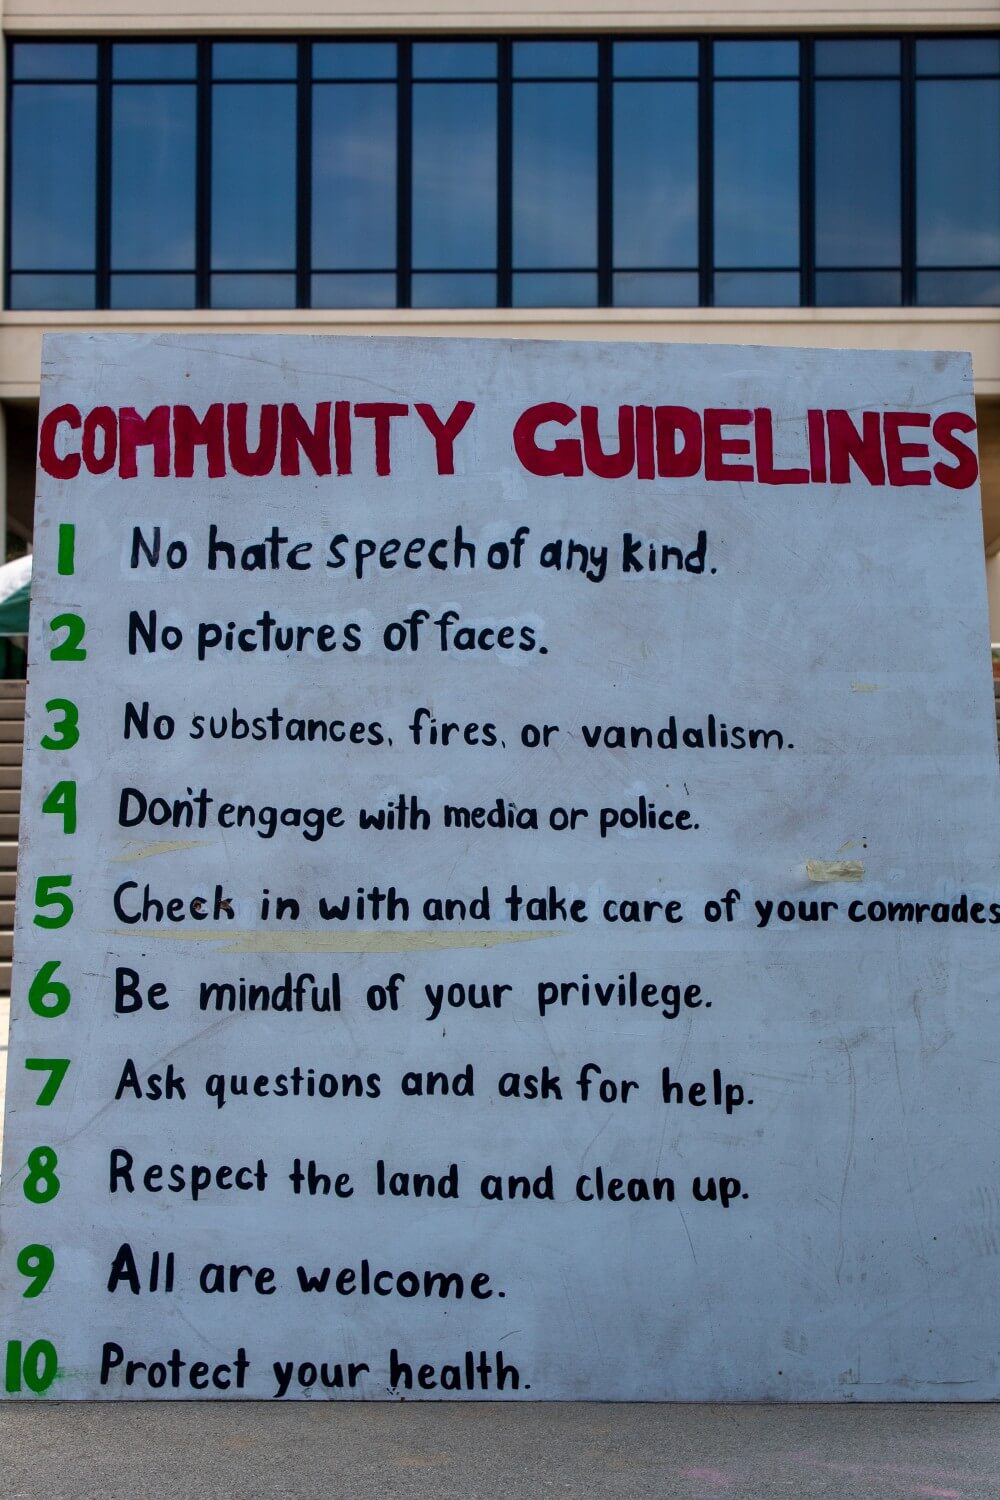 COMMUNITY GUIDELINES
1 No hate speech of any kind.
2 No pictures of faces.
3 No substances, fires, or vandalism.
4 Don't engage with media or police.
5 Check in with and take care of your comrades
6 Be mindful of your privilege.
7 Ask questions and ask for help.
8 Respect the land and clean up.
9 All are welcome.
10 Protect your health.